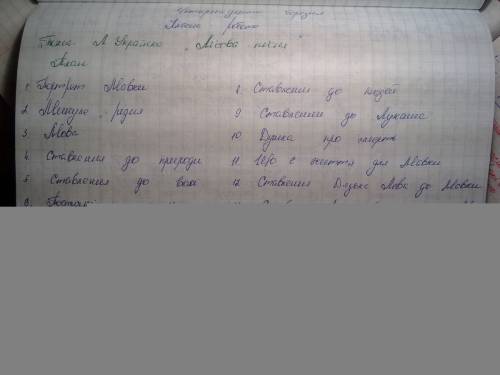 Чотирнадцяте березня
Класна робота
Тема: Л Українка „Лісова пісня"
План
1. Портрет Мавки
2. Минуле, рідня
3. Мова
4. Ставлення до природи
5. Ставлення до волі
6.
8. Ставлення до людей
9. Ставлення до Лукаша
10. Думка про смерть
11. Що є життя для Мавки
12. Ставлення Дядька Лева до Мавки